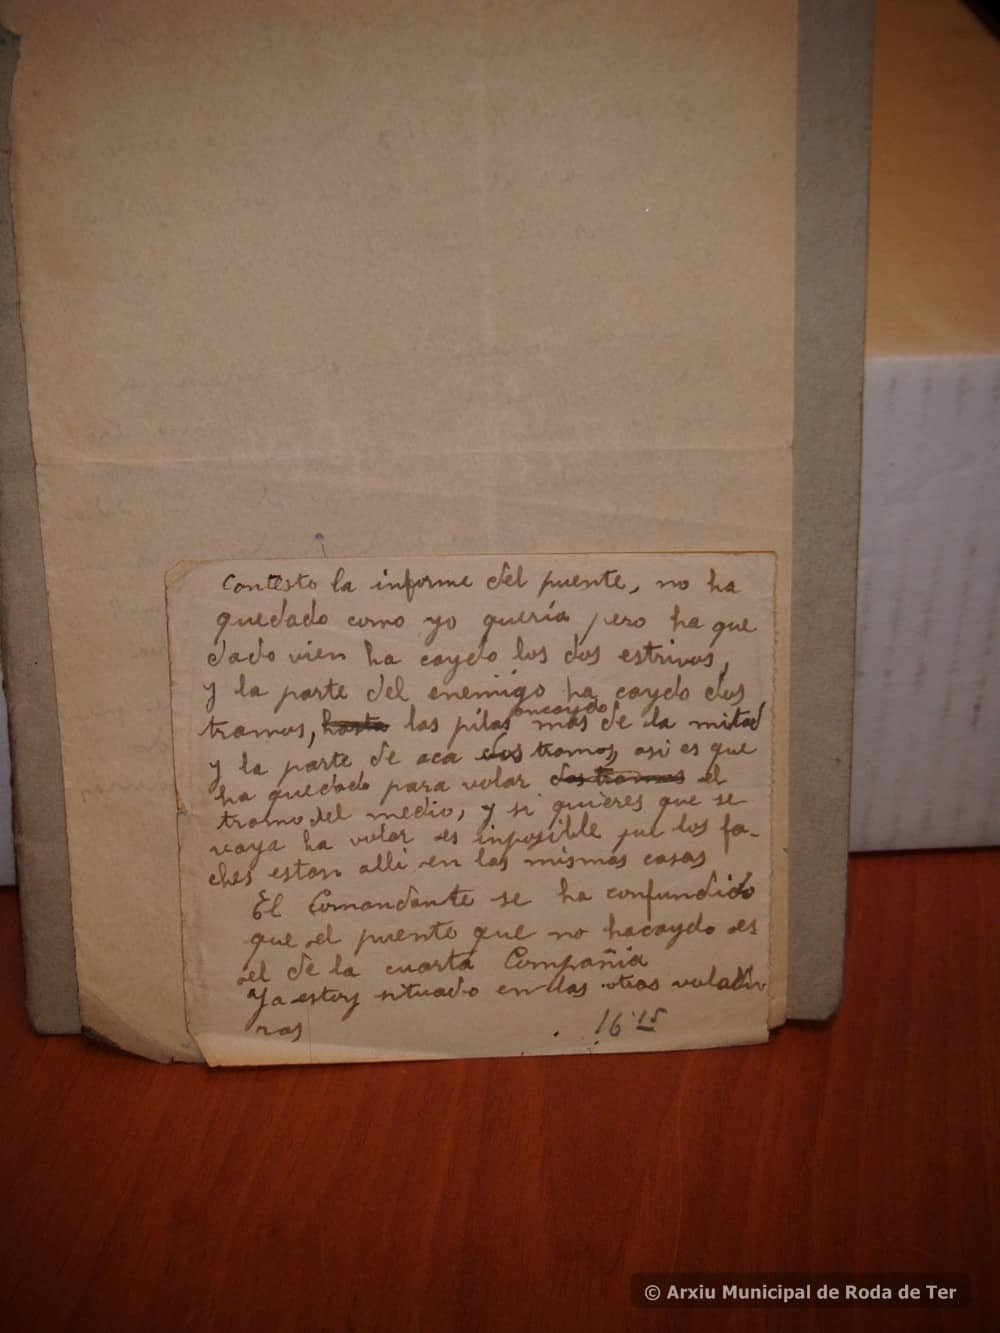 Contesto la informe del puente, no ha
quedado como yo quería pero ha que
dado vien ha caydo los dos estrivos,
y la parte del enemigo ha caydo dos
tramos, hasta las pilas an caydo mas de la mitad
y la parte de aca dos tramos, asi es que
ha quedado para volar dos tramos el
tramo del medio, y si quieres que se
vaya ha volar es imposible que los fa-
ches estan alli en las mismas casas
El Comandante se ha confundido
que el puente que no ha caydo es
el de la cuarta Compañia
Ya estoy situado en las otras voladu
ras
16'15
© Arxiu Municipal de Roda de Ter